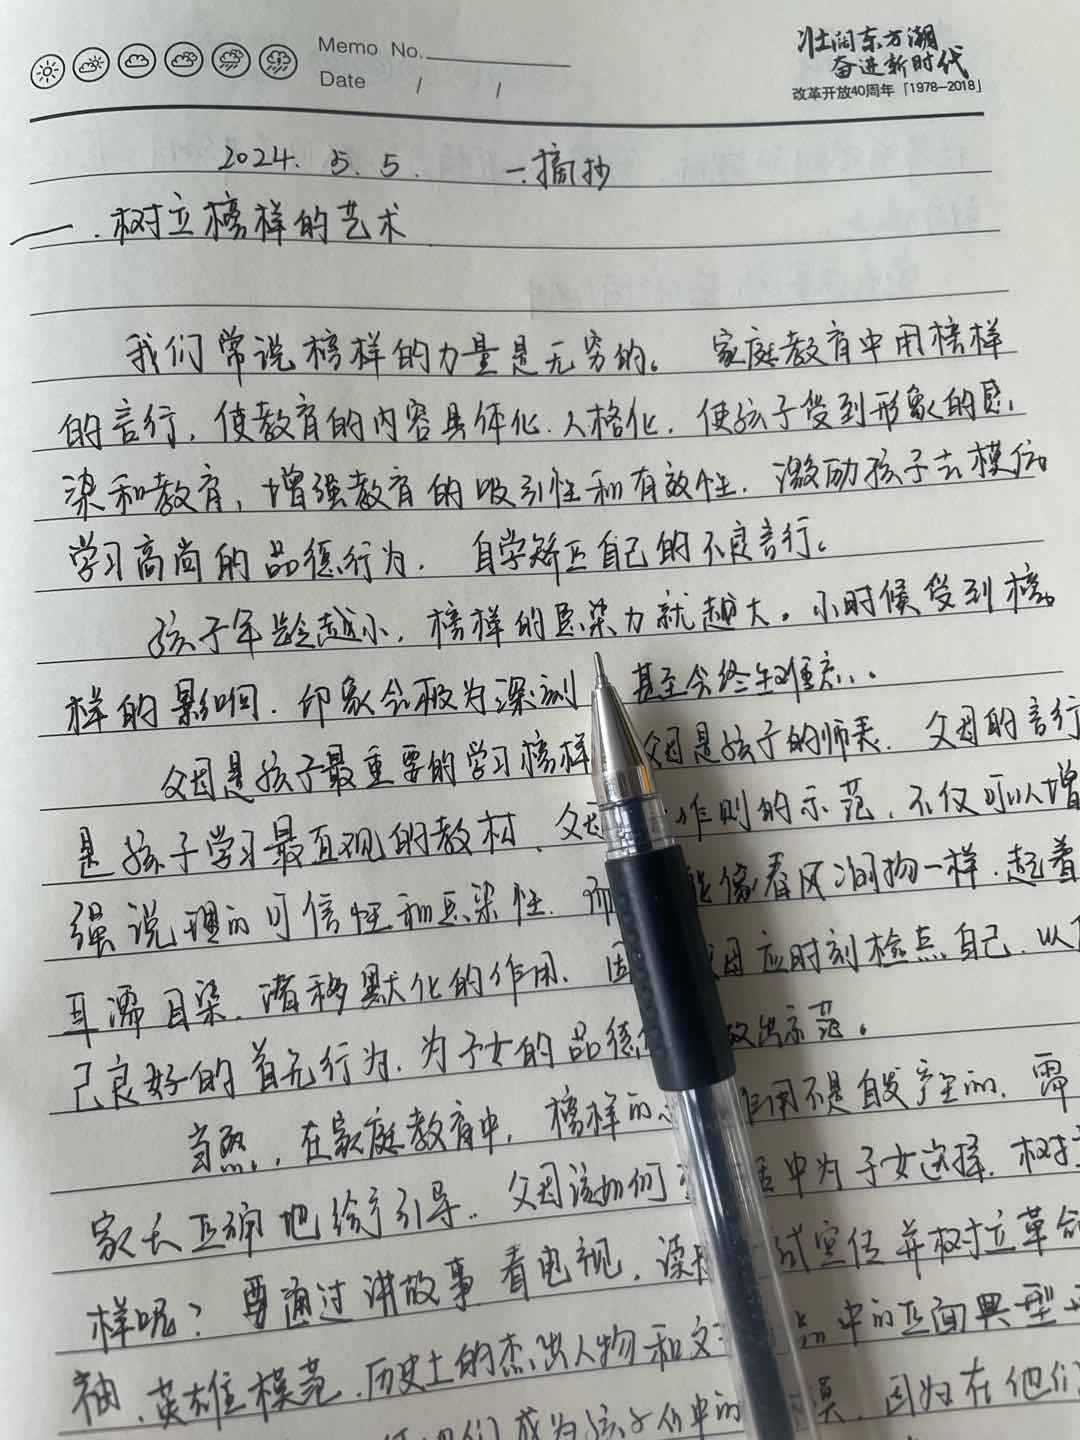 Memo No.
Date / /
壮阔东方潮
奋进新时代
改革开放40周年「1978-2018」
2024. 5. 5. 一.摘抄
一.树立榜样的艺术
我们常说榜样的力量是无穷的。家庭教育中用榜样
的言行,使教育的内容具体化.人格化,使孩子受到形象的感
染和教育,增强教育的吸引性和有效性.激励孩子去模仿
学习高尚的品德行为.自学矫正自己的不良言行。
孩子年龄越小,榜样的感染力就越大。小时候受到榜
样的影响.印象会极为深刻 甚至会终生难忘。
父母是孩子最重要的学习榜样 父母是孩子的师表.父母的言行
是孩子学习最直观的教材、父 作则的示范,不仅可以增
强说理的可信性和感染性.而 能像春风润物一样.起着
耳濡目染.潜移默化的作用.因 父母应时刻检点自己.以
己良好的首先行为.为子女的品德 做出示范。
当然,在家庭教育中,榜样的 作用不是自发产生的.需
家长正确地给予引导.父母该如何 中为子女选择.树
样呢?要通过讲故事看电视,读 宣传并树立革命
袖.英雄模范.历史上的杰出人物和文 中的正面典型
们成为孩子们中的 在他们